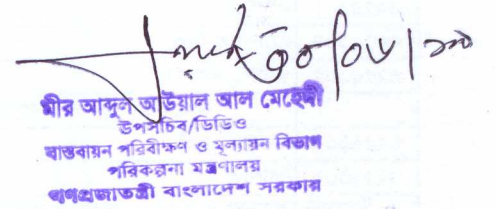 মীর আব্দুল আউয়াল আল মেহেদী
উপসচিব/ডিডিও
বাস্তবায়ন পরিবীক্ষণ ও মূল্যায়ন বিভাগ
পরিকল্পনা মন্ত্রণালয়
গণপ্রজাতন্ত্রী বাংলাদেশ সরকার